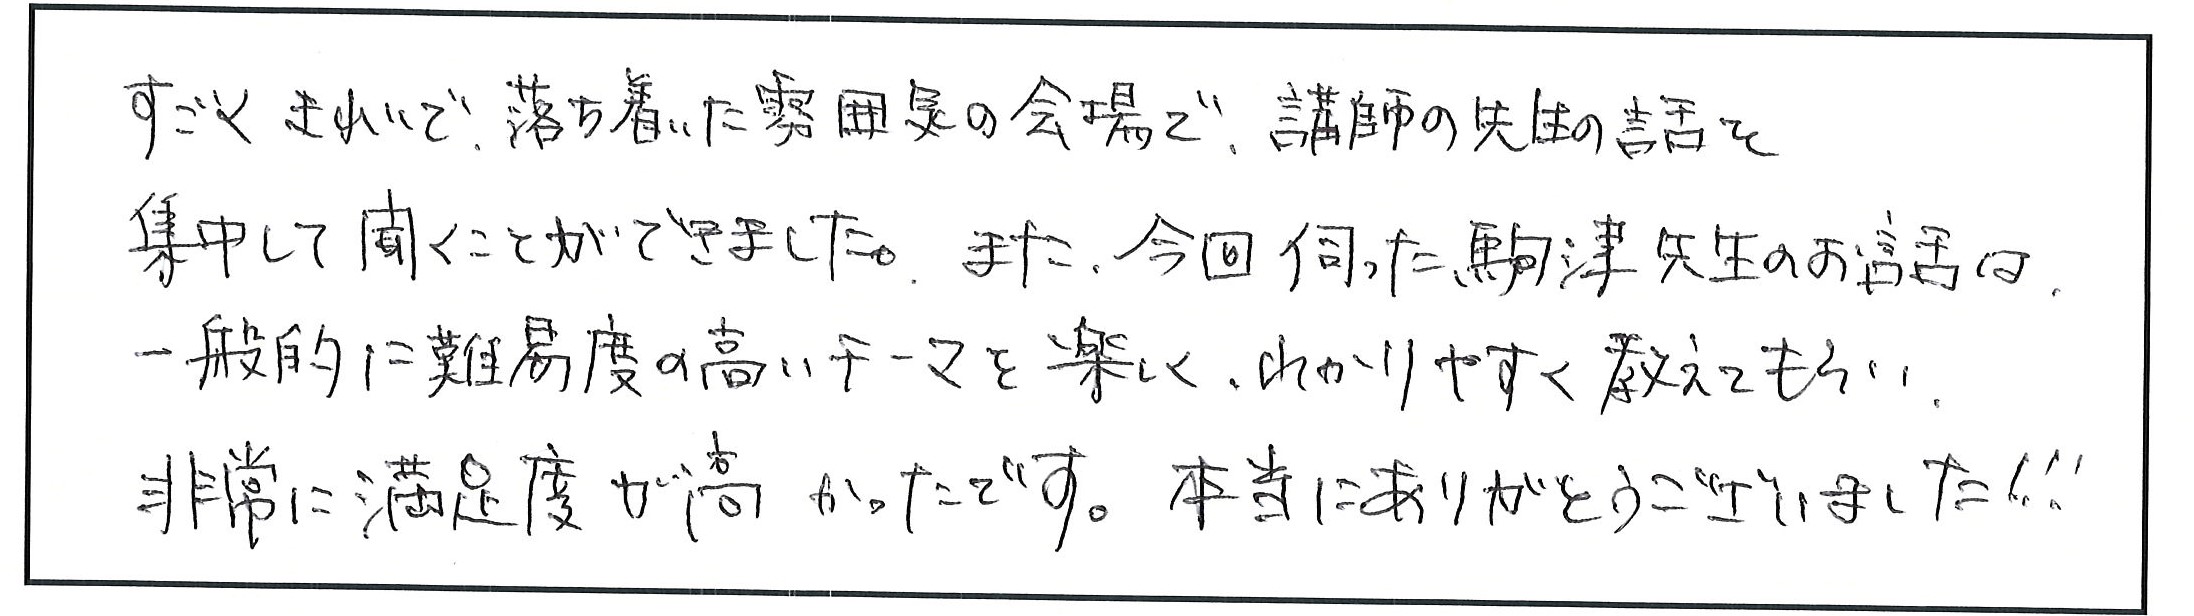 すごくきれいで、落ち着いた雰囲気の会場で、講師の先生の話を
集中して聞くことができました。また、今回伺った駒津先生のお話は、
一般的に難易度の高いテーマを楽しく、わかりやすく教えてもらい、
非常に満足度が高かったです。本当にありがとうございました!!!